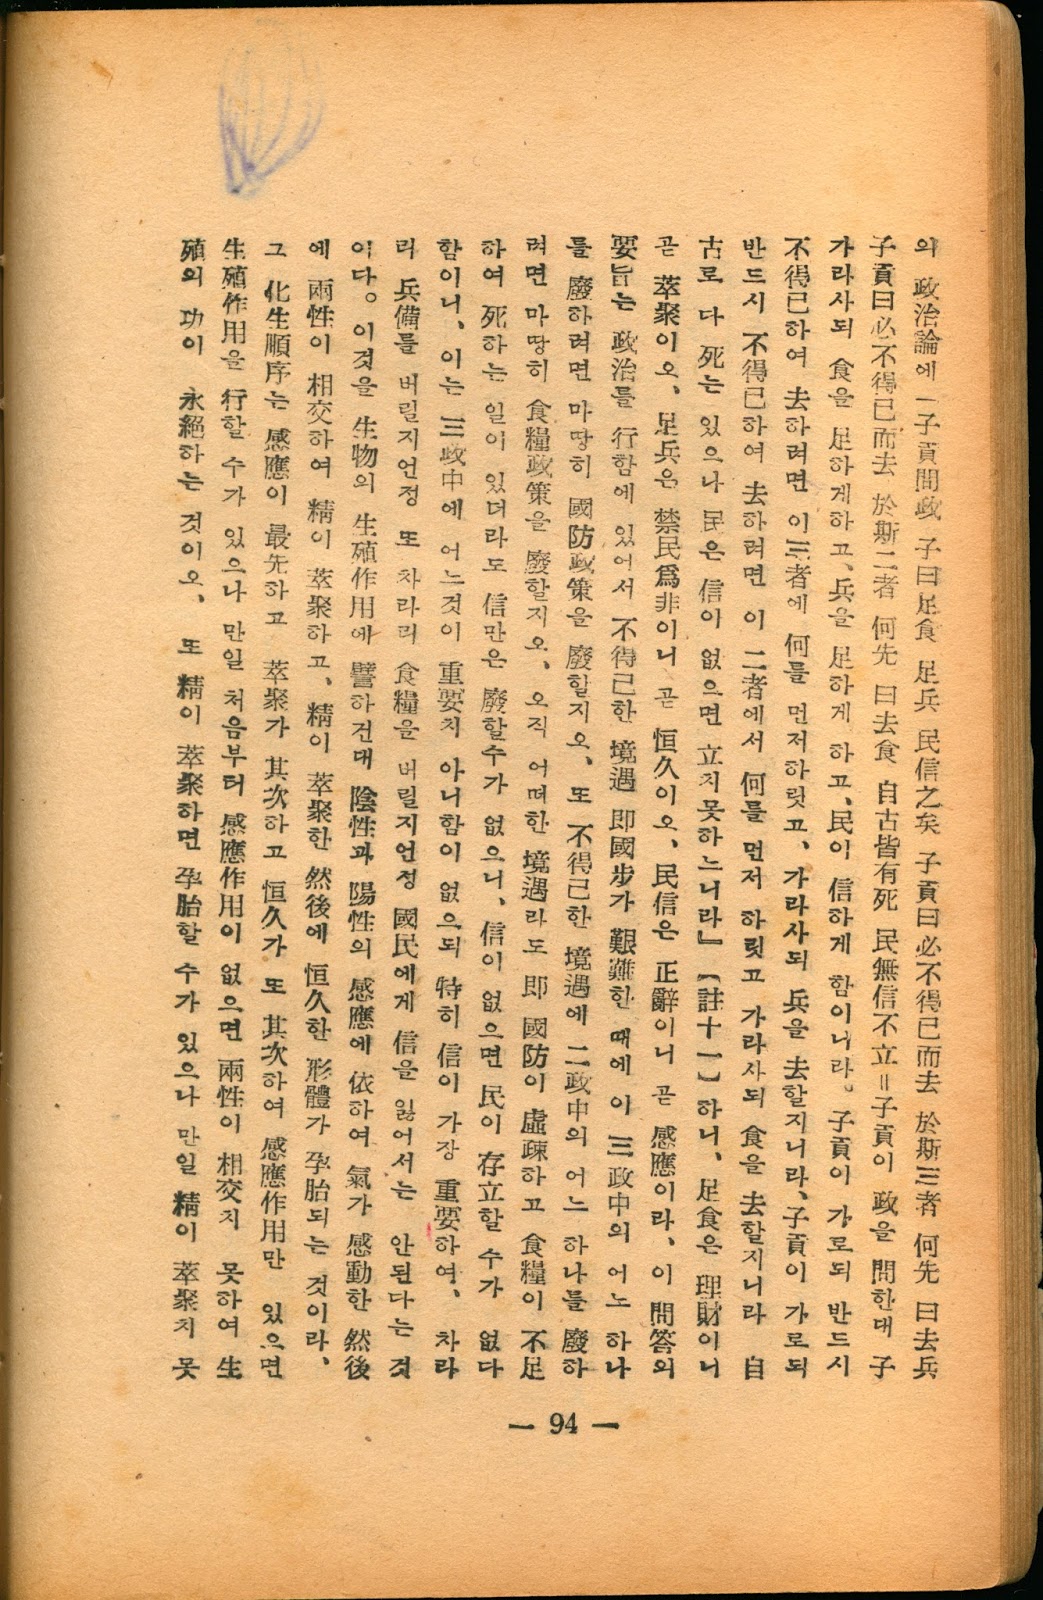 의 政治論에 ―子貢問政 子曰足食 足兵 民信之矣 子貢曰必不得已而去 於斯三者 何先 曰去兵
子貢曰必不得已而去 於斯二者 何先 曰去食 自古皆有死 民無信不立＝子貢이 政을 問한대 子
가라사되 食을 足하게하고、兵을 足하게 하고、民이 信하게 함이니라。子貢이 가로되 반드시
不得已하여 去하려면 이三者에 何를 먼저하릿고、가라사되 兵을 去할지니라、子貢이 가로되
반드시 不得已하여 去하려면 이 二者에서 何를 먼저 하릿고 가라사되 食을 去할지니라 自
古로 다 死는 있으나 民은 信이 없으면 立지못하느니라」【註十一】하니、足食은 理財이니
곧 萃聚이오、足兵은 禁民爲非이니 곧 恒久이오、民信은 正辭이니 곧 感應이라、이 問答의
要旨는 政治를 行함에 있어서 不得已한 境遇 即國步가 艱難한 때에 이 三政中의 어느 하나
를 廢하려면 마땅히 國防政策을 廢할지오、또 不得已한 境遇에 二政中의 어느 하나를 廢하
려면 마땅히 食糧政策을 廢할지오、오직 어떠한 境遇라도 即 國防이 虛疎하고 食糧이 不足
하여 死하는 일이 있더라도 信만은 廢할수가 없으니、信이 없으면 民이 存立할 수가 없다
함이니、이는 三政中에 어느것이 重要치 아니함이 없으되 特히 信이 가장 重要하여、차라
리 兵備를 버릴지언정 또 차라리 食糧을 버릴지언정 國民에게 信을 잃어서는 안된다는 것
이다。이것을 生物의 生殖作用에 譬하건대 陰性과 陽性의 感應에 依하여 氣가 感動한 然後
에 兩性이 相交하여 精이 萃聚하고、精이 萃聚한 然後에 恒久한 形體가 孕胎되는 것이라、
그 化生順序는 感應이 最先하고 萃聚가 其次하고 恒久가 또 其次하여 感應作用만 있으면
生殖作用을 行할 수가 있으나 만일 처음부터 感應作用이 없으면 兩性이 相交치 못하여 生
殖의 功이 永絕하는 것이오、또 精이 萃聚하면 孕胎할 수가 있으나 만일 精이 萃聚치 못
— 94 —